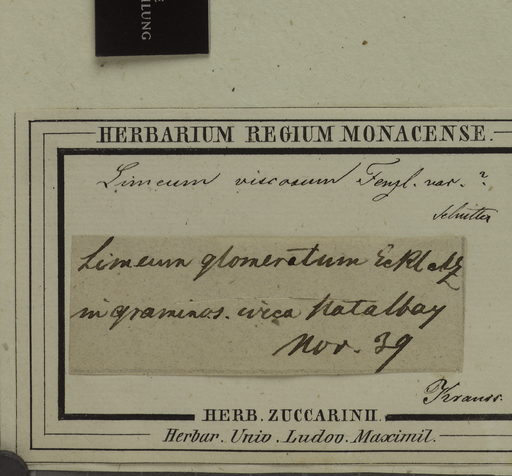 HERBARIUM REGIUM MONACENSE.
Limeum viscosum Fenzl. var. ?
Limeum glomeratum Eckl & Z
in graminos. circa Natalbay
Nov. 39
Krauss.
HERB. ZUCCARINII.
Herbar. Univ. Ludov. Maximil.